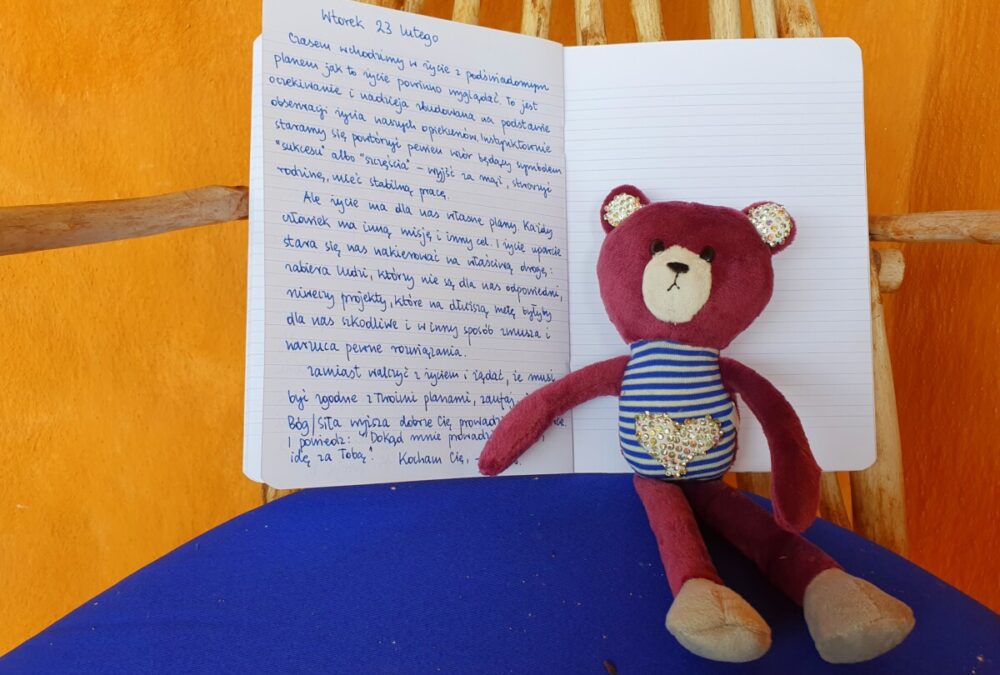 Wtorek 23 lutego
Czasem wchodzimy w życie z podświadomym
planem jak to życie powinno wyglądać. To jest
oczekiwanie i nadzieja zbudowana na podstawie
obserwacji życia naszych opiekunów. Instynktownie
staramy się powtórzyć pewien wzór będący symbolem
"sukcesu" albo "szczęścia" – wyjść za mąż, stworzyć
rodzinę, mieć stabilną pracę.
Ale życie ma dla nas własne plany. Każdy
człowiek ma inną misję i inny cel. I życie uparcie
stara się nas nakierować na właściwą drogę:
zabiera ludzi, którzy nie są dla nas odpowiedni,
niweczy projekty, które na dłuższą metę byłyby
dla nas szkodliwe i w inny sposób zmusza i
narzuca pewne rozwiązania.
Zamiast walczyć z życiem i żądać, że musi
być zgodne z Twoimi planami, zaufaj,
Bóg/siła wyższa dobrze Cię prowadzi
I powiedz: "Dokąd mnie prowadzi
idę za Tobą". Kocham Cię,